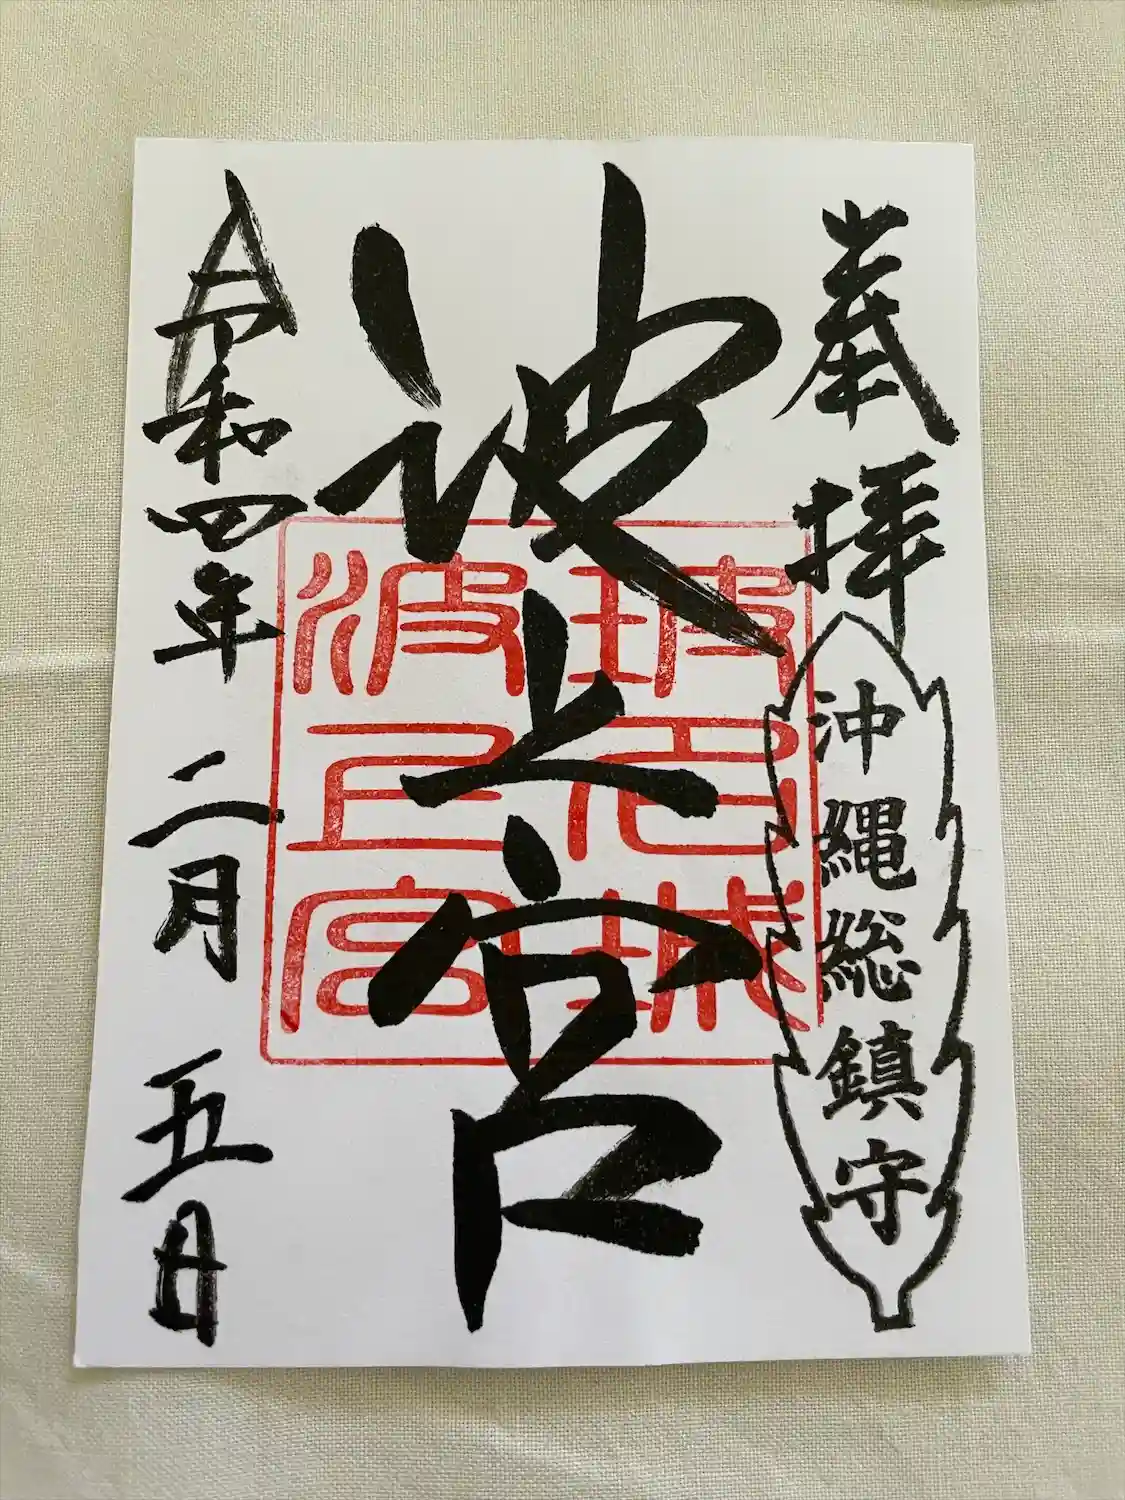 奉拝
沖縄総鎮守
波上宮
玻名城
波上宮
令和四年二月五日